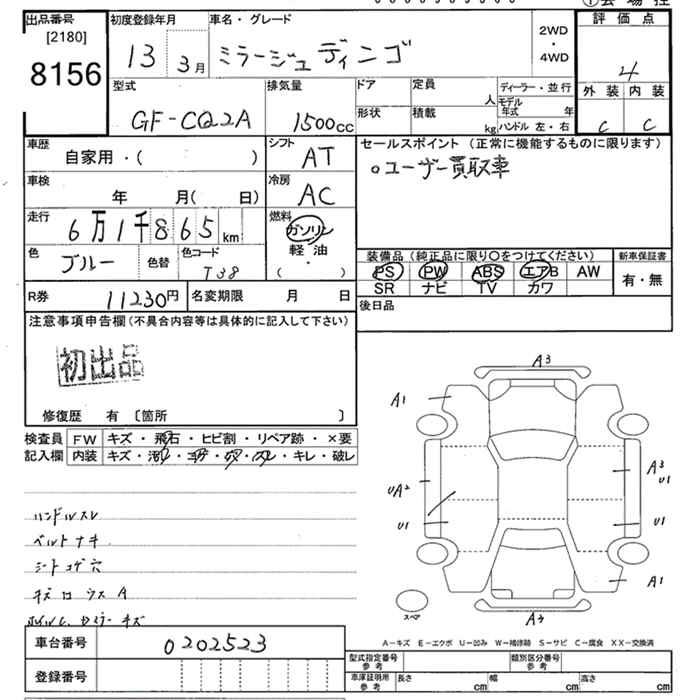 出品番号
[2180]
8156
初度登録年月
13 3月
車名・グレード
ミラージュ ディンゴ
2WD
・
4WD
評価点
4
外装 内装
C C
型式
GF-CQ2A
排気量
1500cc
ドア
定員
人
ディーラー・並行
形状
積載
kg
モデル年式 年
ハンドル 左・右
車歴
自家用・( )
シフト
AT
車検
年 月( 日)
冷房
AC
走行
6万1千865km
燃料
ガソリン
軽油
・
( )
色
ブルー
色替
色コード
T38
セールスポイント(正常に機能するものに限ります)
○ユーザー買取車
装備品(純正品に限り○をつけてください)
PS PW ABS エアB AW
SR ナビ TV カワ
新車保証書
有・無
R券 11230円
名変期限 月 日
後日品
注意事項申告欄(不具合内容等は具体的に記入して下さい)
初出品
修復歴 有 〔箇所 〕
検査員 FW キズ・飛石・ヒビ割・リペア跡・×要
記入欄 内装 キズ・汚れ・コゲ・穴・スレ・キレ・破レ
ハンドルスレ
ベルトナキ
シートコゲ穴
A3
A1
UA2
U1
A3
U1
U1
A1
A3
スペア
A-キズ E-エクボ U-凹み W-補修跡 S-サビ C-腐食 XX-交換済
車台番号 0202523
登録番号
型式指定番号
参考
類別区分番号
参考
車庫証明用
参考
長さ cm
幅 cm
高さ cm